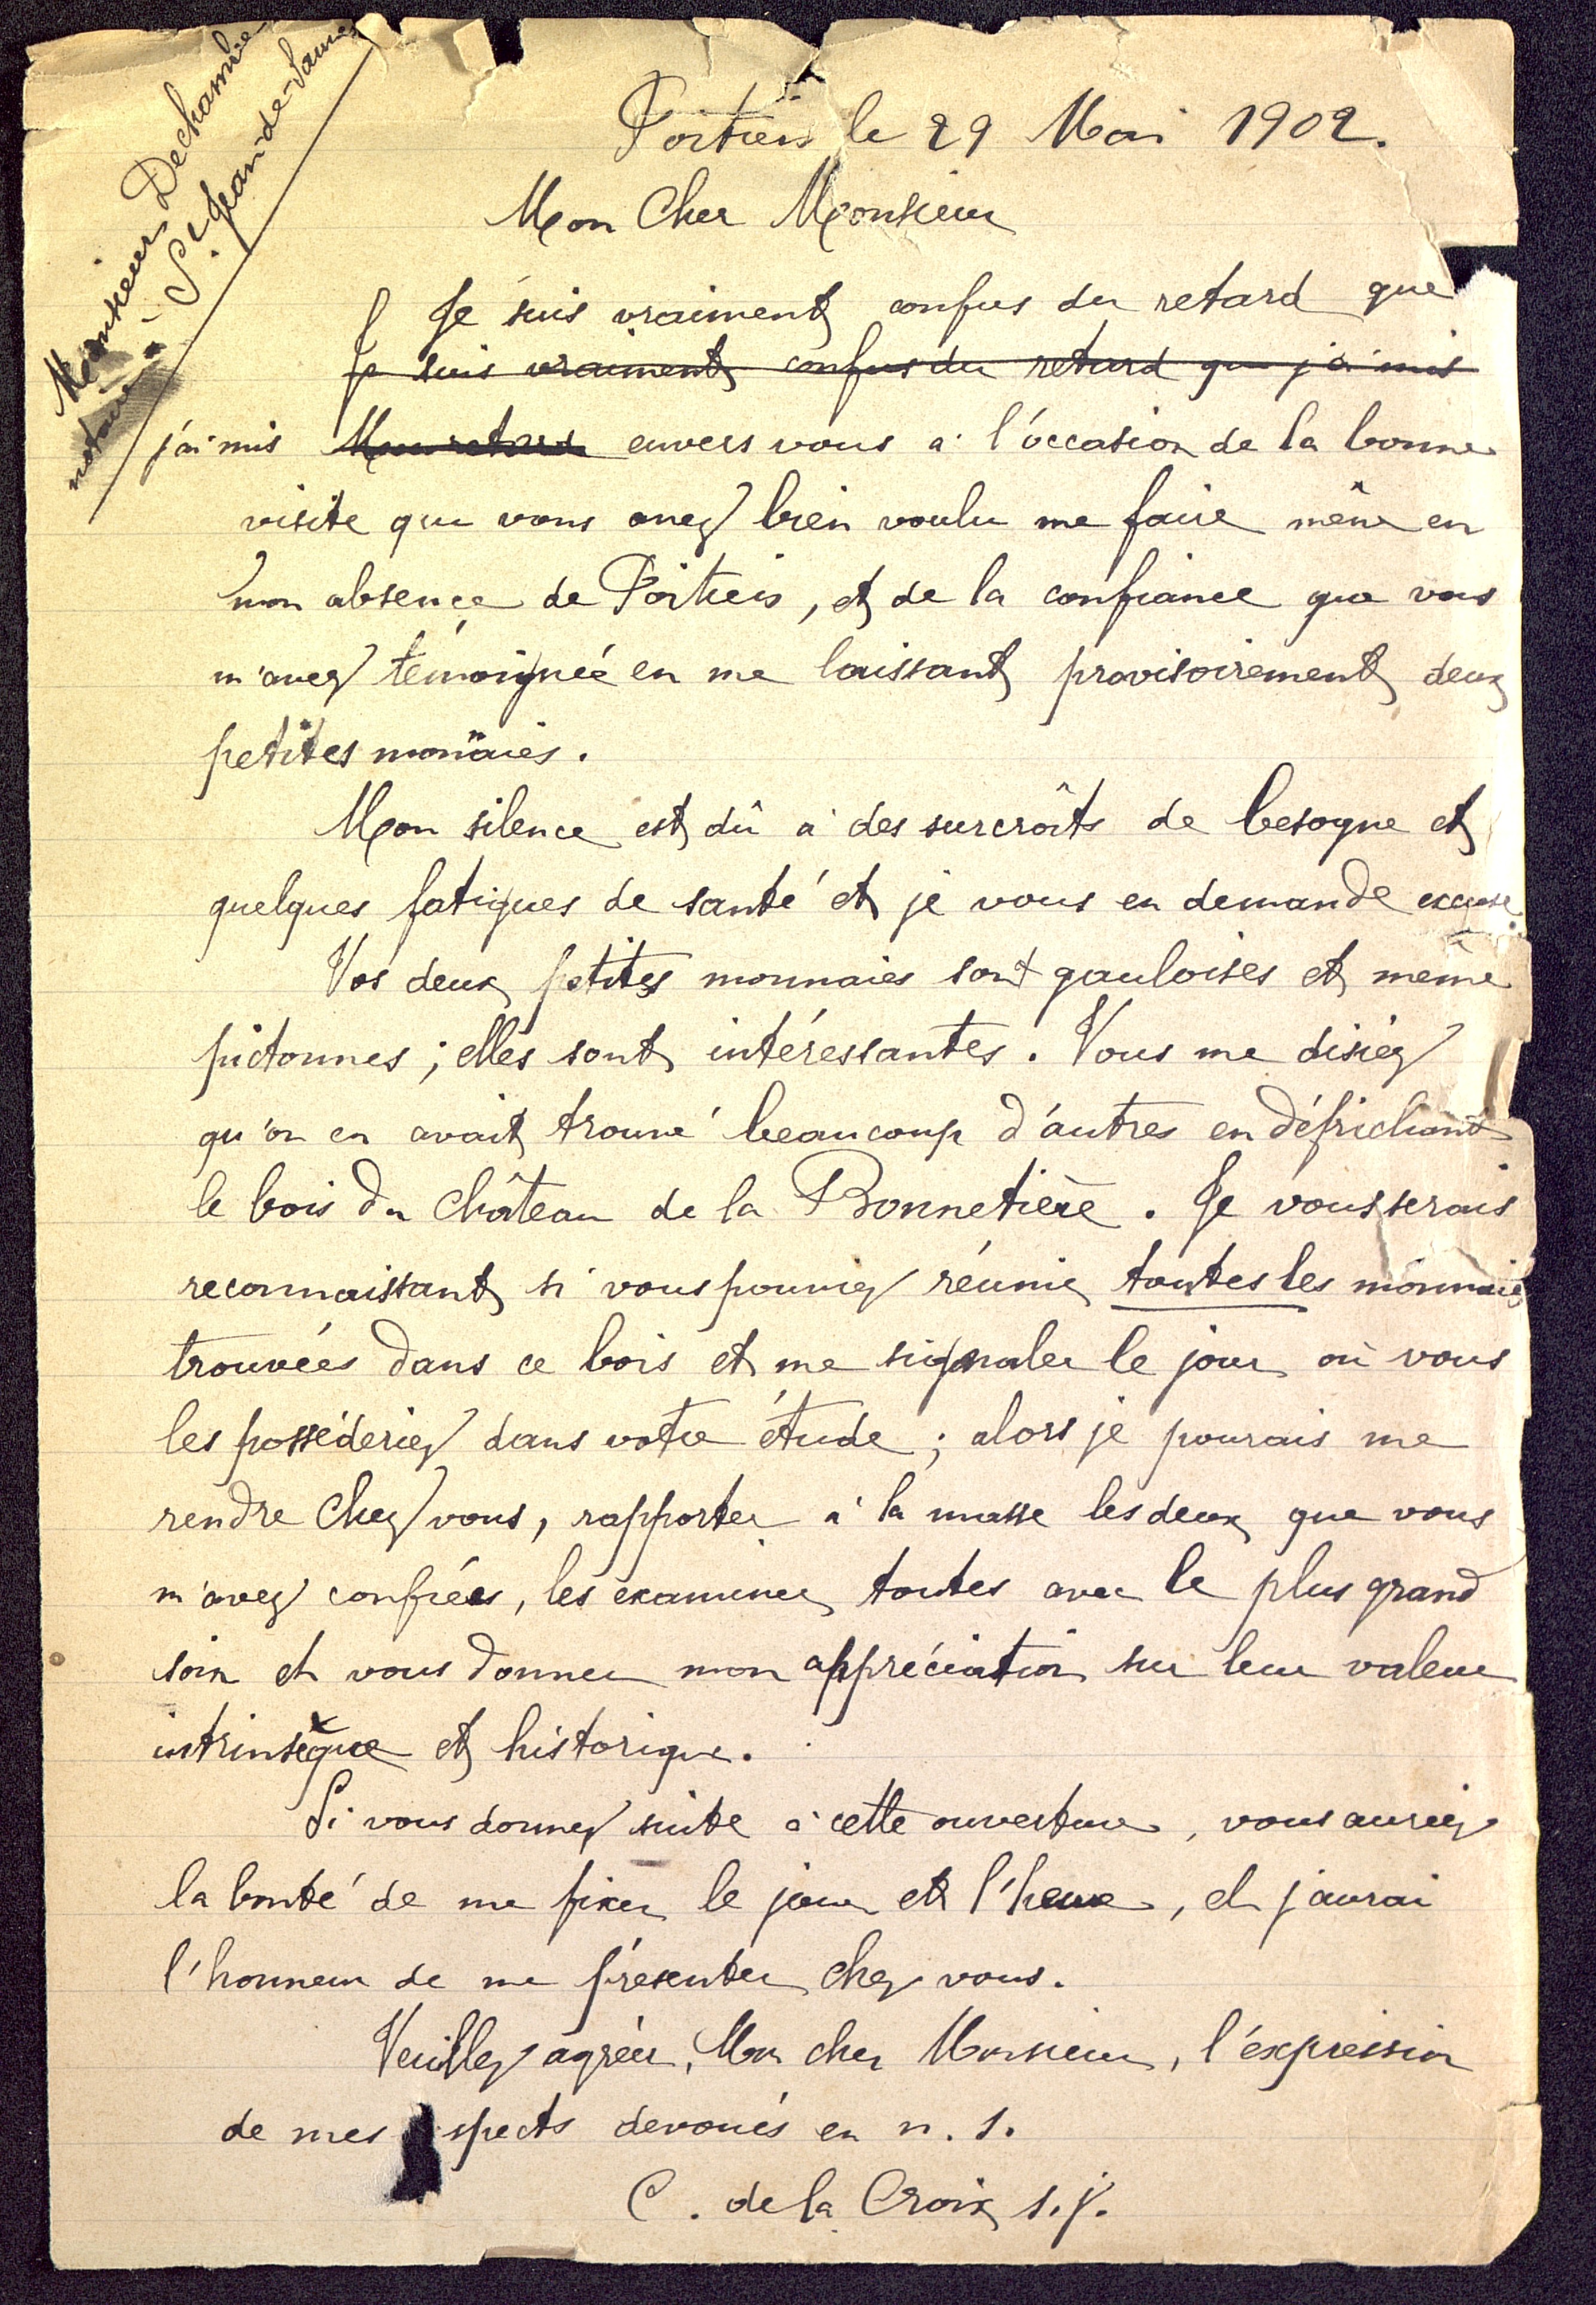 Monsieur Dechambe
notaire à St Jean-de-Sauves
Poitiers le 29 Mai 1902.
Mon Cher Monsieur
Je suis vraiment confus du retard que
Je suis vraiment confus du retard que j'ai mis
j'ai mis Mon retard envers vous à l'occasion de la bonne
visite que vous avez bien voulu me faire même en
mon absence de Poitiers, et de la confiance que vous
m'avez témoignée en me laissant provisoirement deux
petites monaies.
Mon silence est dû à des surcroîts de besogne et
quelques fatigues de santé et je vous en demande excuse.
Vos deux petites monnaies sont gauloises et même
pictonnes ; elles sont intéressantes. Vous me disiez
qu'on en avait trouvé beaucoup d'autres en défrichant
le bois du château de la Bonnetière. Je vous serais
reconnaissant si vous pouviez réunir toutes les monnaies
trouvées dans ce bois et me signaler le jour où vous
les posséderiez dans votre étude ; alors je pourais me
rendre chez vous, rapporter à la masse les deux que vous
m'avez confiées, les examiner toutes avec le plus grand
soin et vous donner mon appréciation sur leur valeur
intrinsèque et historique.
Si vous donnez suite à cette ouverture, vous auriez
la bonté de me fixer le jour et l'heure, et j'aurai
l'honneur de me présenter chez vous.
Veuillez agréer, Mon cher Monsieur, l'éxpression
de mes spects devoués en n. s.
C. de la Croix s.j.